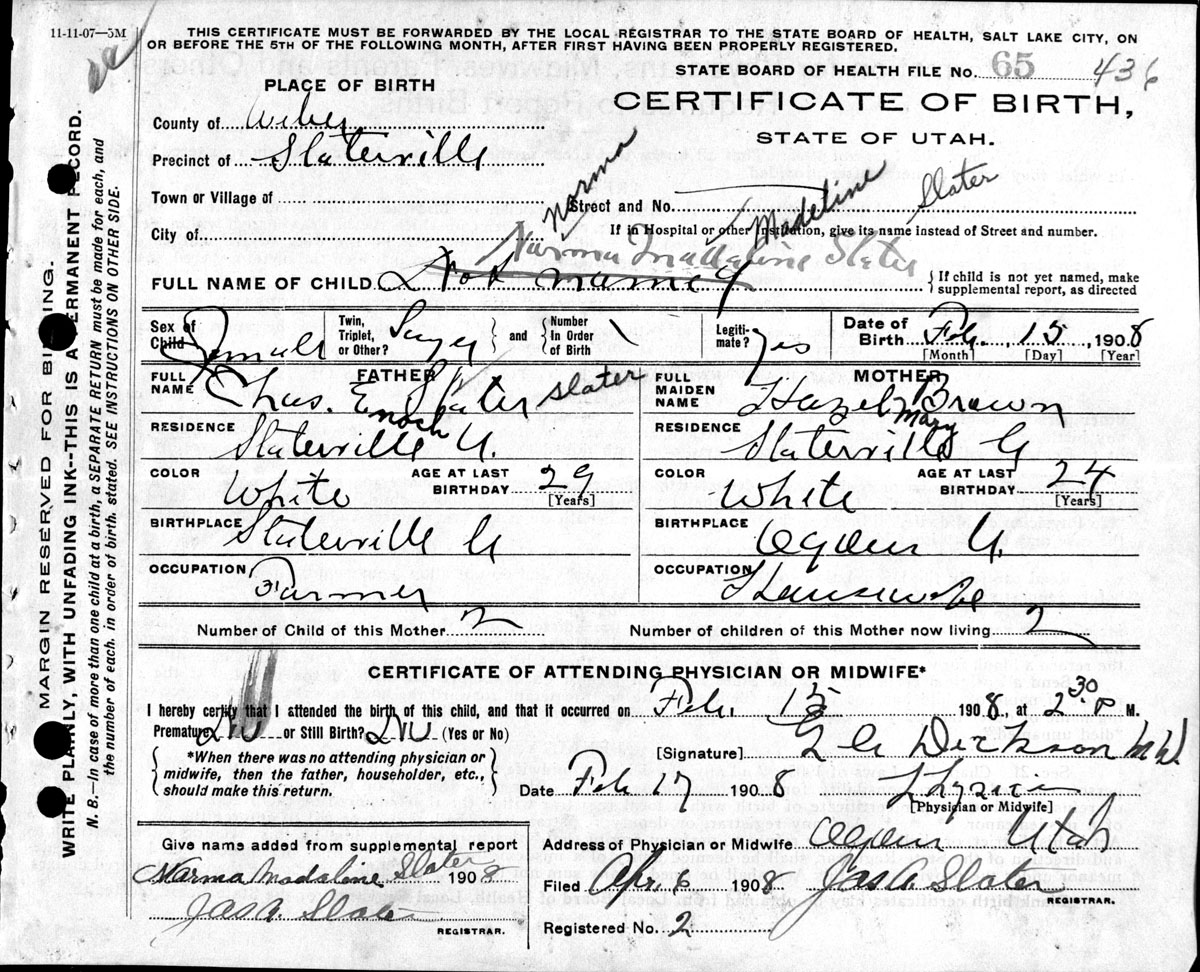 11-11-07—5M
THIS CERTIFICATE MUST BE FORWARDED BY THE LOCAL REGISTRAR TO THE STATE BOARD OF HEALTH, SALT LAKE CITY, ON
OR BEFORE THE 5TH OF THE FOLLOWING MONTH, AFTER FIRST HAVING BEEN PROPERLY REGISTERED.
STATE BOARD OF HEALTH FILE No. 65 436
PLACE OF BIRTH
CERTIFICATE OF BIRTH,
STATE OF UTAH.
County of Weber
Precinct of Slaterville
Town or Village of
Street and No.
City of
If in Hospital or other Institution, give its name instead of Street and number.
Norma Madeline Slater
Norma Madaline Slater
FULL NAME OF CHILD Not named
{If child is not yet named, make
supplemental report, as directed
Sex of Child Female
Twin, Triplet, or Other?
and {Number In Order of Birth
Legitimate? yes
Date of Birth Feb. 15, 1908
[Month] [Day] [Year]
FATHER
FULL NAME Chas. E Slater Slater
Enoch
RESIDENCE Slaterville U.
COLOR White AGE AT LAST BIRTHDAY 29 [Years]
BIRTHPLACE Slaterville U
OCCUPATION Farmer
MOTHER
FULL MAIDEN NAME Hazel Brown
Mary
RESIDENCE Slaterville U
COLOR White AGE AT LAST BIRTHDAY 24 [Years]
BIRTHPLACE Ogden U.
OCCUPATION Housewife
Number of Child of this Mother 2 Number of children of this Mother now living 2
CERTIFICATE OF ATTENDING PHYSICIAN OR MIDWIFE*
I hereby certify that I attended the birth of this child, and that it occurred on Feb. 15 1908, at 2 30 P M.
Premature No or Still Birth? No (Yes or No)
[Signature] Dickson M.D.
{*When there was no attending physician or
midwife, then the father, householder, etc.,
should make this return.}
Date Feb 17 1908
[Physician or Midwife]
Address of Physician or Midwife Ogden Utah
Give name added from supplemental report
Narma Madalene Slater 1908
Jas A. Slater
REGISTRAR.
Filed Apr. 6 1908 Jas A. Slater
REGISTRAR.
Registered No. 2
MARGIN RESERVED FOR BINDING.
WRITE PLAINLY, WITH UNFADING INK--THIS IS A PERMANENT RECORD.
N. B.—In case of more than one child at a birth, a SEPARATE RETURN must be made for each, and
the number of each, in order of birth, stated. SEE INSTRUCTIONS ON OTHER SIDE.